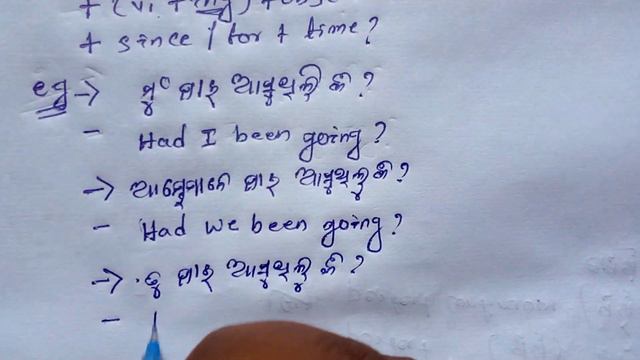 + (V₁ + ing) +
+ since / for + time?
eg → ମୁଁ ଯାଇ ଆସୁଥିଲି କି ?
- Had I been going?
→ ଆମ୍ଭେମାନେ ଯାଇ ଆସୁଥିଲୁ କି ?
- Had we been going?
→ ତୁ ଯାଇ ଆସୁଥିଲୁ କି ?
-